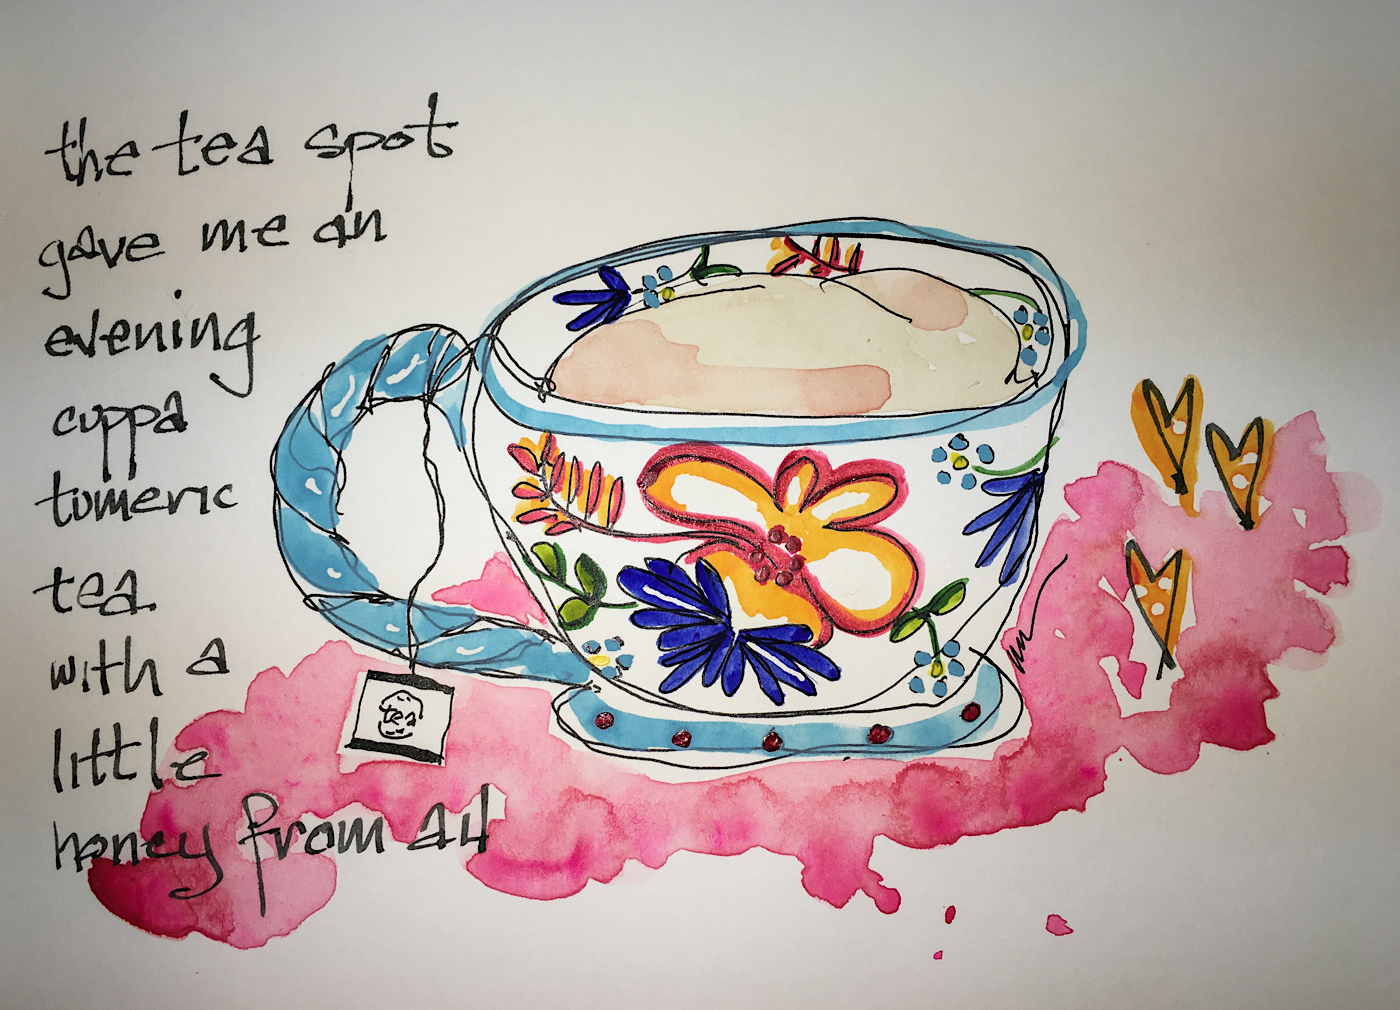 the tea spot
gave me an
evening
cuppa
tumeric
tea.
with a
little
honey from
tea